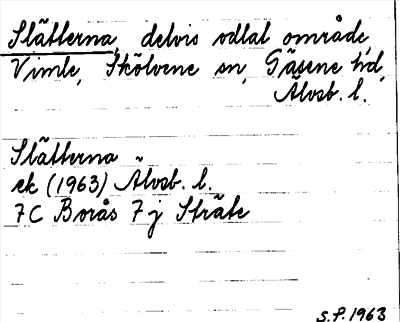 Slätterna, delvis odlat område,
Vimle, Skölvene sn, Gäsene hd,
Älvsb. l.
Slätterna
ek (1963) Älvsb. l.
7C Borås 7j Stråte
S.P. 1963